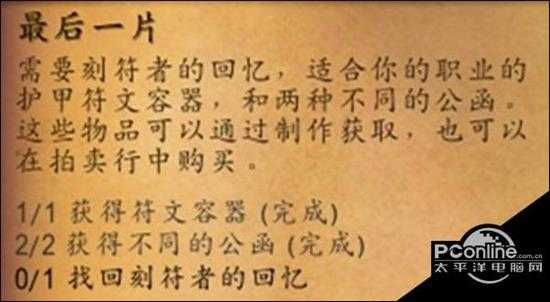 最后一片
需要刻符者的回忆，适合你的职业的
护甲符文容器，和两种不同的公函。
这些物品可以通过制作获取，也可以
在拍卖行中购买。
1/1 获得符文容器 (完成)
2/2 获得不同的公函 (完成)
0/1 找回刻符者的回忆
PConline.com.cn
太平洋电脑网